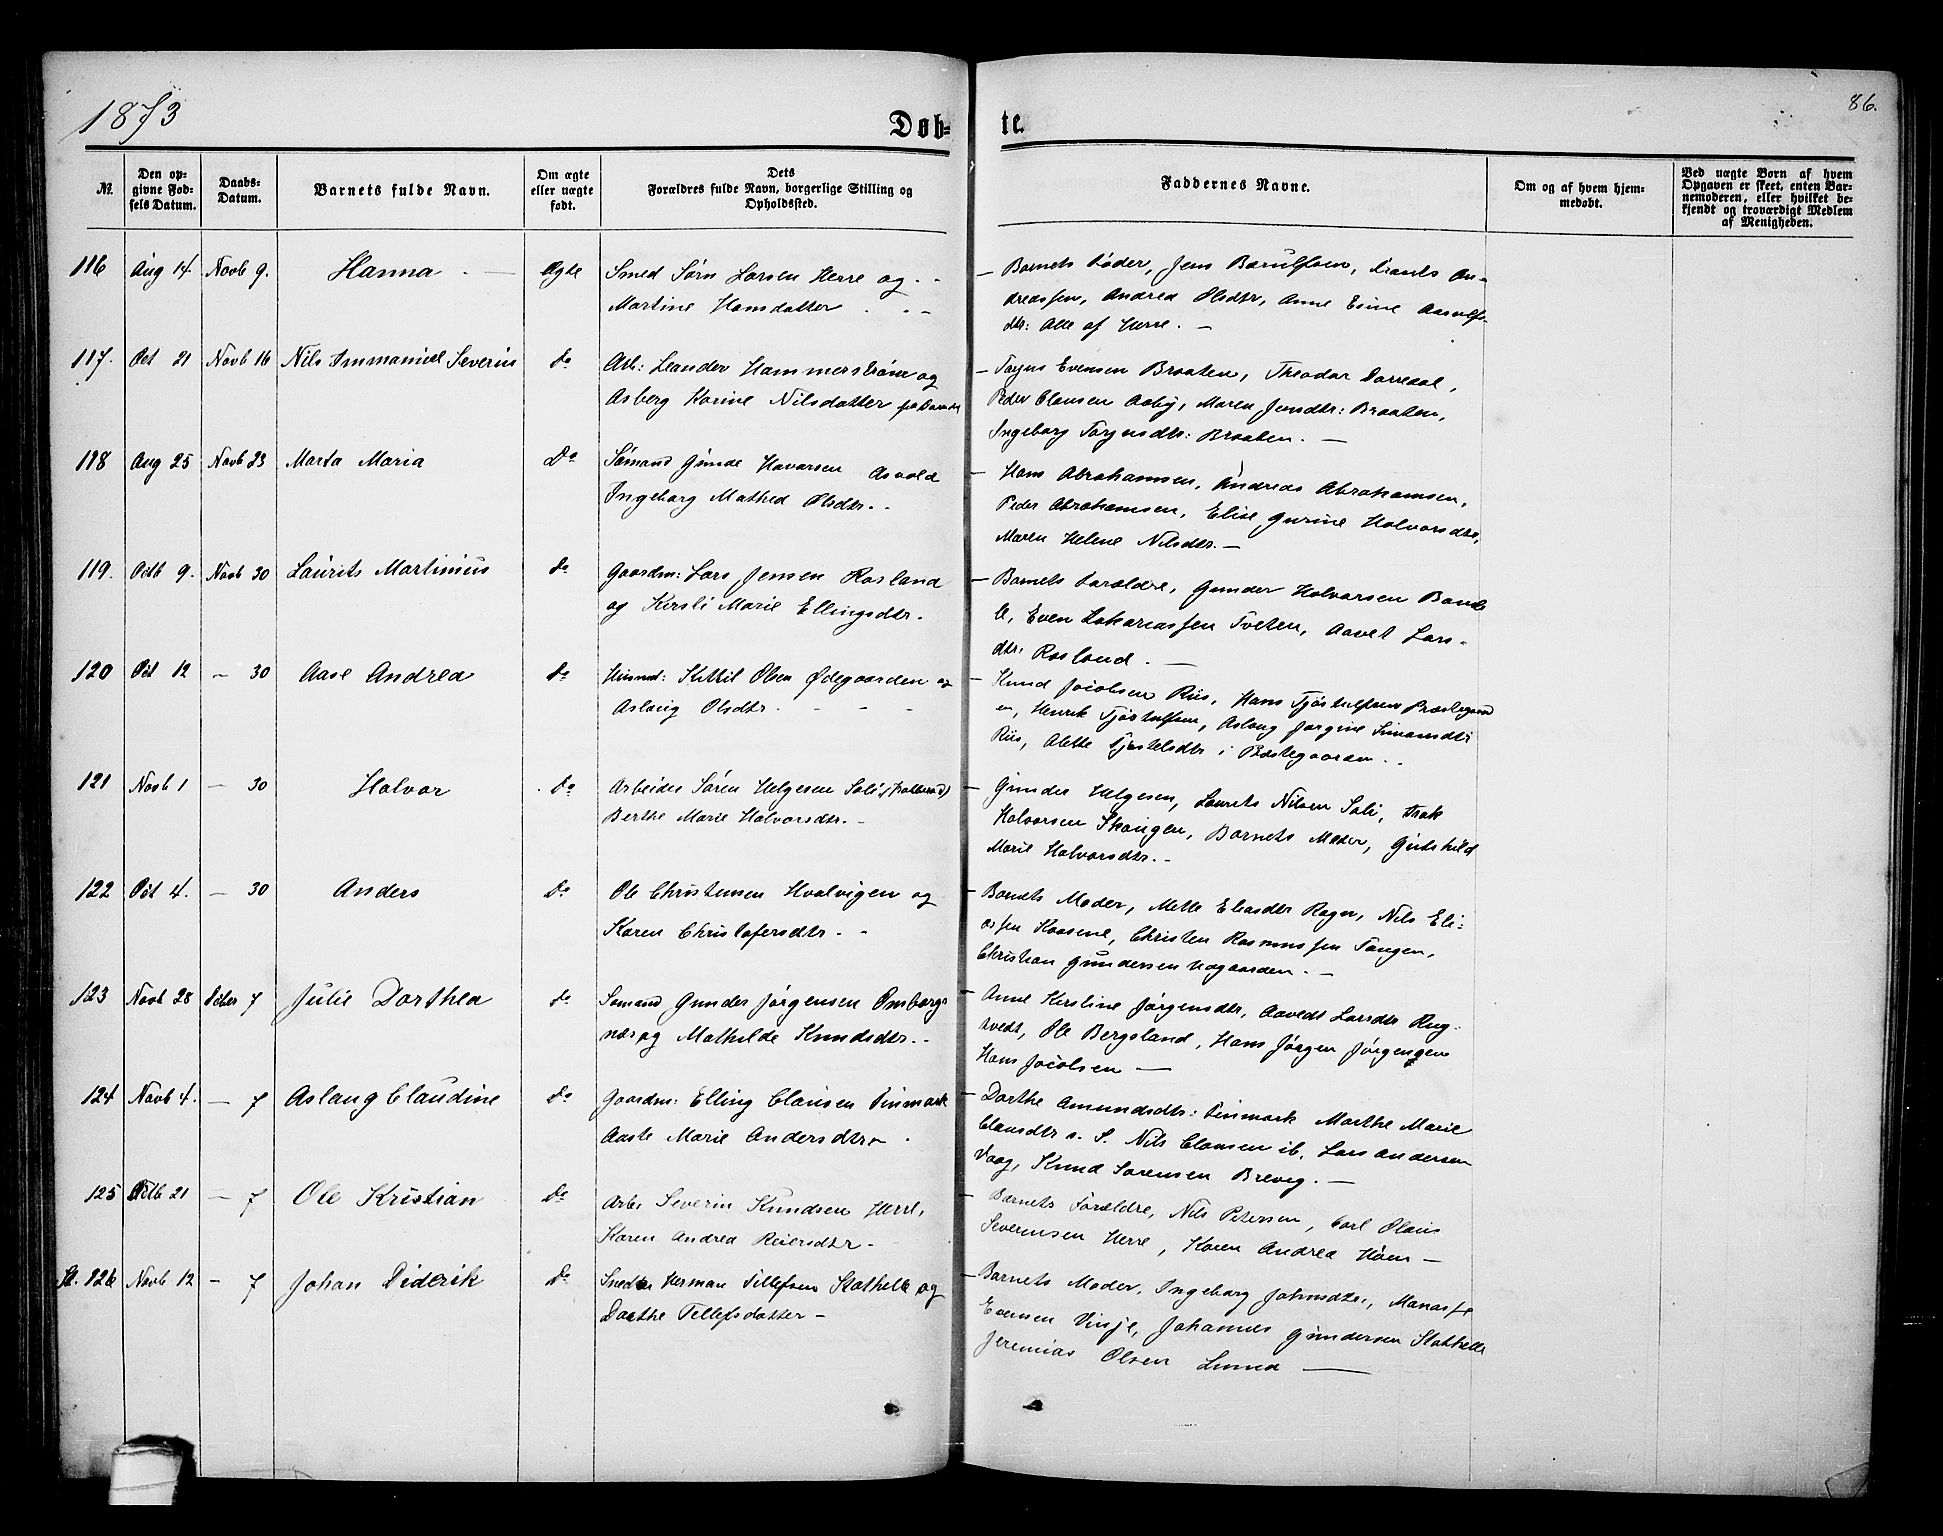 1873
Døb=
te.
86.
Nr.
Den op-
givne Fød-
sels Datum.
Daabs-
Datum.
Barnets fulde Navn.
Om ægte
eller uægte
født.
Dets
Forældres fulde Navn, borgerlige Stilling og
Opholdssted.
Faddernes Navne.
Om og af hvem hjem-
medøbt.
Ved uægte Børn af hvem
Opgaven er skeet, enten Bar-
nemoderen, eller hvilket be-
kjendt og troværdigt Medlem
af Menigheden.
116 Aug 14. Novb 9. Hanna Ægte Smed Sørn Larsen Herre og
Martine Hansdatter
Barnets Fader, Jens Barulfsen, Frants An-
dreassen, Andrea Olsdtr, Anne Esine
dtr: Alle af Herre.
117. Oct 21 Novb 16 Nils Immanuel Severin do Arb: Leander Hammerstrøm og
Asberg Karine Nilsdatter
Torjus Evensen Braaten, Theodor
Peder Clausen Aaby, Maren Jensdtr: Braaten,
Ingeborg Torjusdtr: Braaten.
118 Aug 25 Novb 23 Marta Maria Do Sømand Gunde Havorsen Asvold
Ingeborg Mathea Olsdtr.
Hans Abrahamsen, Andreas Abrahamsen,
Peder Abrahamsen, Elise Gurine Halvorsdtr,
Maren Helene Nilsdtr.
119. Octb 9. Novb 30 Laurits Martinius do Gaardm: Lars Jensen Rosland
og Kersti Marie Ellingsdtr.
Barnets Forældre, Gunder Halvorsen Bam-
le, Even Zakariassen Tveten, Aavet Lars-
dtr: Rosland.
120 Oct 12 - 30 Aase Andrea do Husmd: Kittil Olsen Ødegaarden og
Aslaug Olsdtr.
Knud Jacobsen Riis, Hans Tjøstulfsen Præstegaard
en, Henrik Tjøstulfsen, Aslaug Jørgine Simonsdtr
Riis, Alette Tjøstelsdtr i Præstegaarden.
121 Novb 1 - 30 Halvor Do Arbeider Søren Helgesen Sali,
Berthe Marie Halvorsdtr.
Gunder Helgesen, Laurits Nilsen Sali, Isak
Halvorsen Skougen, Barnets Moder, Gutshild
Marie Halvorsdtr.
122 Oct 4. - 30 Anders Do Ole Christensen Hvalvigen og
Karen Christofersdtr.
Barnets Moder, Mette Eliasdtr Roger, Nils Eli-
assen Kaasene, Christen Rasmussen Tangen,
Christian Gundersen
123 Novb 28 Dcber 7 Julie Dorthea do Sømand Gunder Jørgensen Omborgs-
næs og Mathilde Knudsdtr.
Anne Kirstine Jørgensdtr, Aavedt Larsdtr Rug-
tvedt, Ole Bergsland, Hans Jørgen Jørgensen
Hans Jacobsen
124 Novb 4. - 7 Aslaug Claudine do Gaardm: Elling Clausen Finmark
Aaste Marie Andersdtr
Dorthe Amundsdtr: Finmark Marthe Marie
Clausdtr s. S. Nils Clausen ib, Lars Andersen
Vaag, Knud Sørensen Brevig.
125 Octb 21 - 7 Ole Kristian Do Arb. Severin Knudsen Herre,
Karen Andrea Reiersdtr
Barnets Forældre, Nils Petersen, Carl Olaus
Severinsen Herre, Karen Andrea Høen
St. 126 Novb 12 - 7 Johan Diderik Do Snedker Herman Tillefsen Stathelle og
Dorthe Tellefsdatter
Barnets Moder, Ingeborg Johnsdtr, Manasse
Evensen Vinje, Johannes Gundersen Stathelle
Jeremias Olsen Lunna